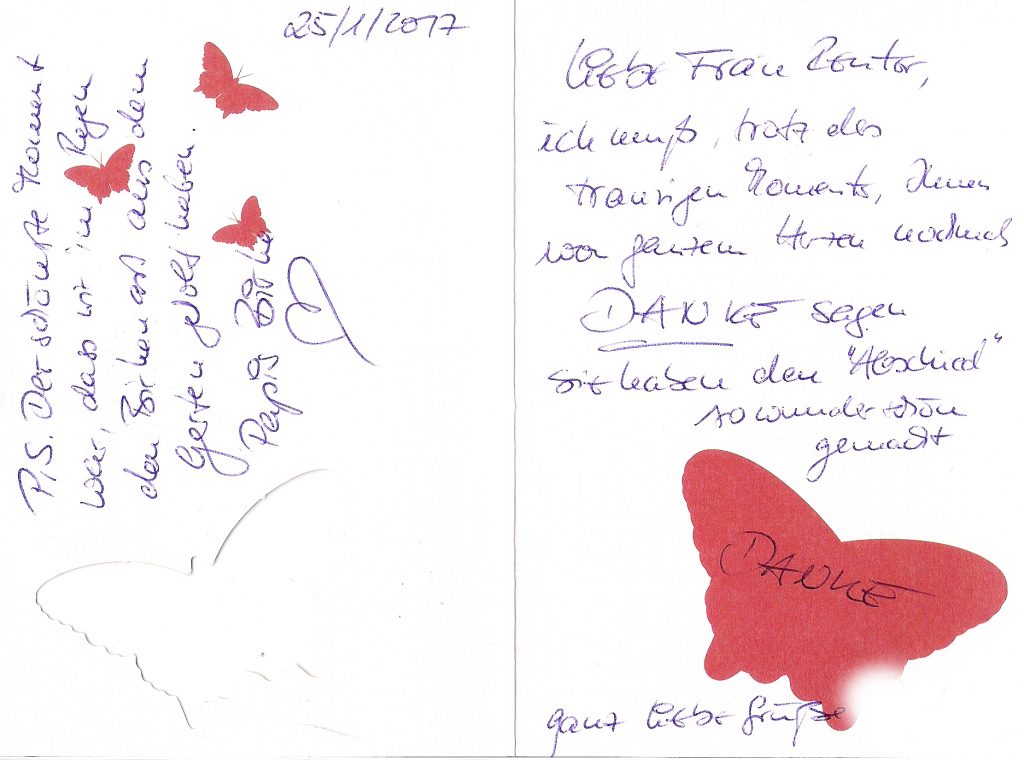 25/1/2017
P.S. Der schönste Moment
war, dass wir im Regen
den Birkenast aus dem
Garten geholt haben.
Papis Birke
Liebe Frau Reuter,
ich muß, trotz des
traurigen Moments, Ihnen
von ganzem Herzen nochmals
DANKE sagen
Sie haben den "Abschied"
so wunderschön
gemacht
DANKE
ganz liebe Grüße